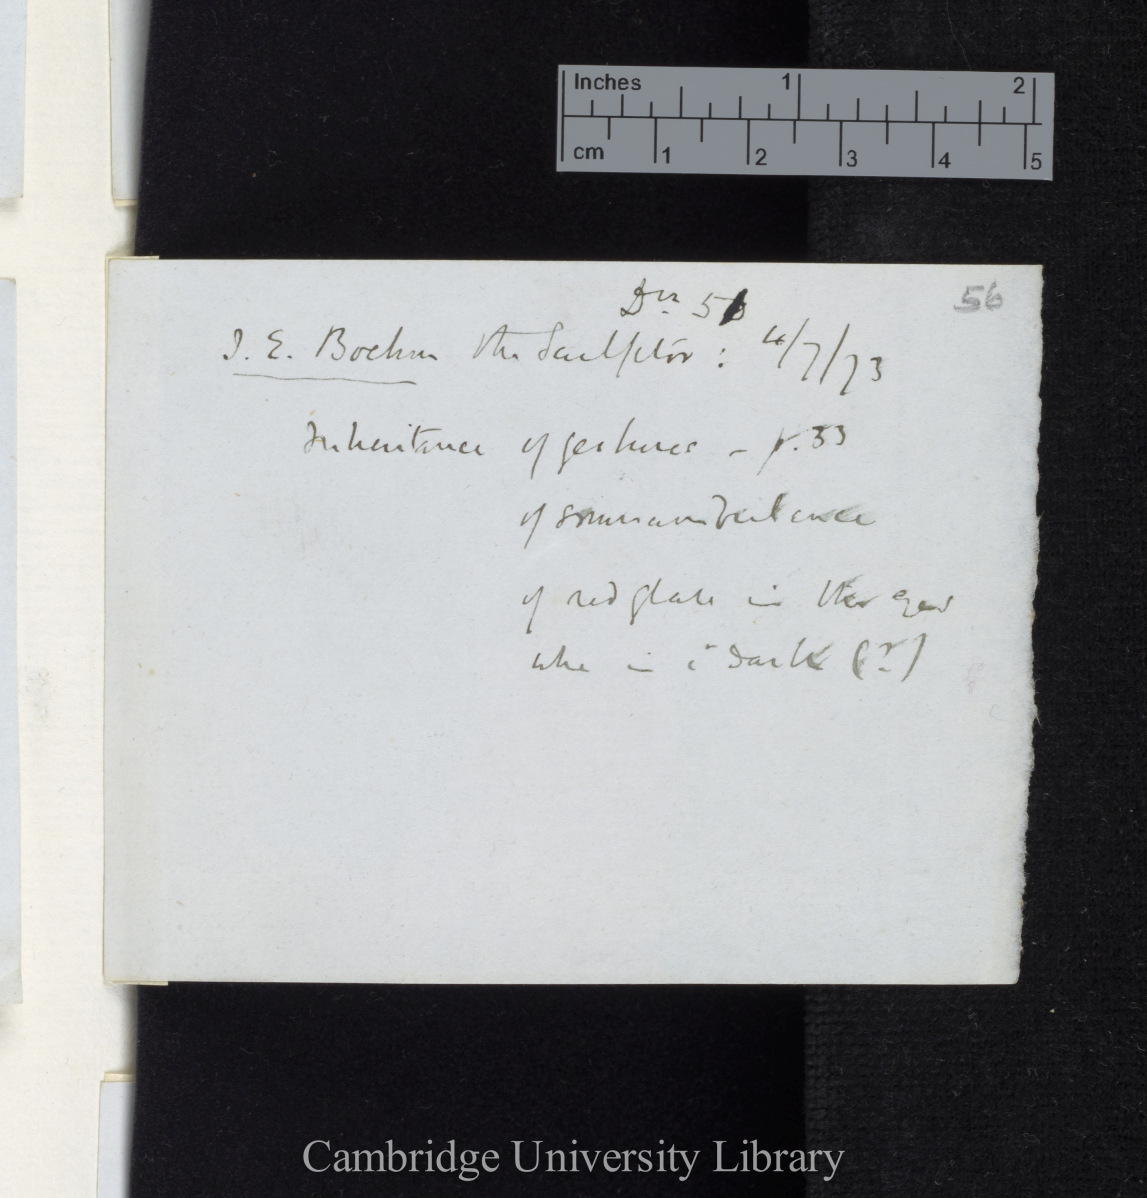 Inches 1 2
cm 1 2 3 4 5
56
J. E. Boehm the Sculptor: 4/7/73
Inheritance of gestures - p. 33
of somnambulance
of red glare in the eyes
when in dark (?)
Cambridge University Library